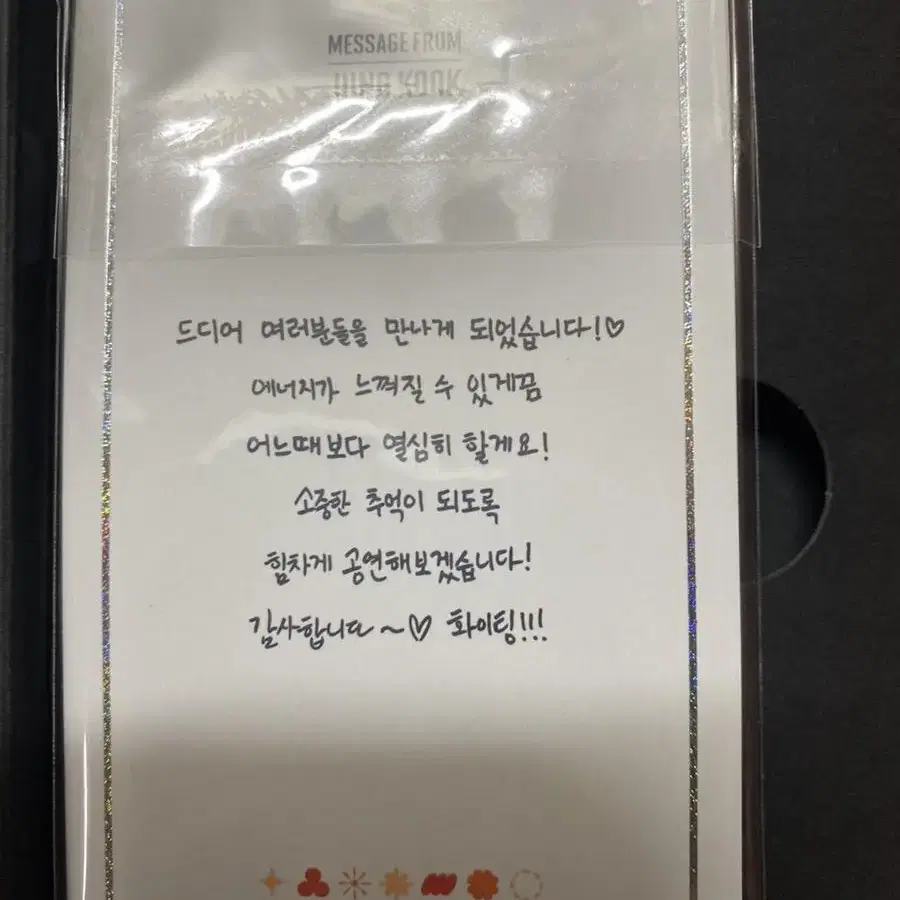 MESSAGE FROM
JUNG KOOK
드디어 여러분들을 만나게 되었습니다!♡
에너지가 느껴질 수 있게끔
어느때보다 열심히 할게요!
소중한 추억이 되도록
힘차게 공연해보겠습니다!
감사합니다~♡ 화이팅!!!